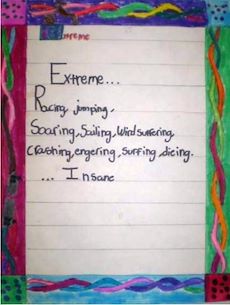 Extreme
Extreme...
Racing, jumping,
Soaring, Sailing, Wind suffering,
Crashing, engering, surfing, dieing.
... Insane